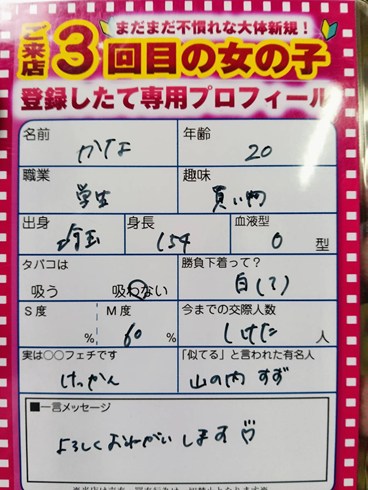 まだまだ不慣れな大体新規!
ご来店3回目の女の子
登録したて専用プロフィール
名前 かな
年齢 20
職業 学生
趣味 買い物
出身 埼玉
身長 154
血液型 O 型
タバコは 吸う 吸わない
勝負下着って? 白(?)
S度 %
M度 60 %
今までの交際人数 人
実は○○フェチです けっかん
「似てる」と言われた有名人 山の内 すず
■一言メッセージ
よろしくおねがいします♡